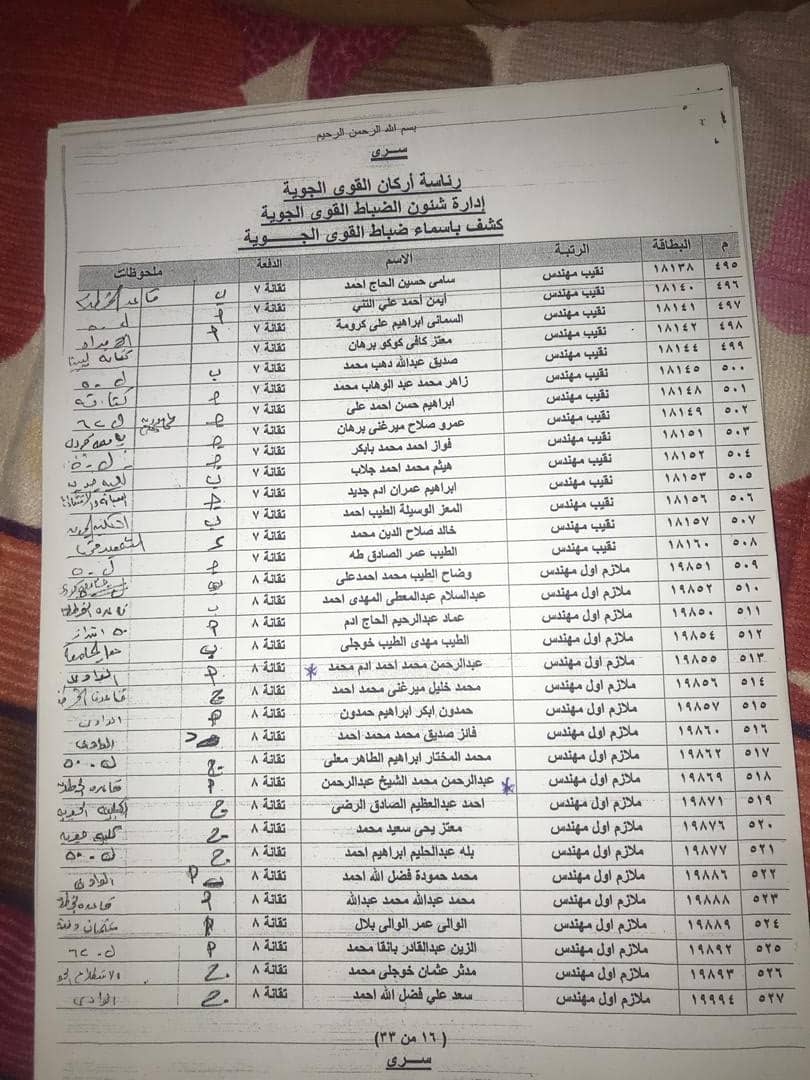 بسم الله الرحمن الرحيم
سـرى
رئاسة أركان القوى الجوية
إدارة شئون الضباط القوى الجوية
كشف باسماء ضباط القوى الجـــــوية
م البطاقة الرتبة الاسم الدفعة ملحوظات
٤٩٥ ١٨١٣٨ نقيب مهندس سامى حسين الحاج احمد تقانة ٧ ب
٤٩٦ ١٨١٤٠ نقيب مهندس أيمن احمد علي التني تقانة ٧
٤٩٧ ١٨١٤١ نقيب مهندس السمانى ابراهيم على كرومة تقانة ٧
٤٩٨ ١٨١٤٢ نقيب مهندس معتز كافى كوكو برهان تقانة ٧
٤٩٩ ١٨١٤٤ نقيب مهندس صديق عبدالله دهب محمد تقانة ٧ ب
٥٠٠ ١٨١٤٥ نقيب مهندس زاهر محمد عبد الوهاب محمد تقانة ٧
٥٠١ ١٨١٤٨ نقيب مهندس ابراهيم حسن احمد على تقانة ٧
٥٠٢ ١٨١٤٩ نقيب مهندس عمرو صلاح ميرغنى برهان تقانة ٧
٥٠٣ ١٨١٥١ نقيب مهندس فواز احمد محمد بابكر تقانة ٧
٥٠٤ ١٨١٥٢ نقيب مهندس هيثم محمد احمد جلاب تقانة ٧ ب
٥٠٥ ١٨١٥٣ نقيب مهندس ابراهيم عمران ادم جديد تقانة ٧
٥٠٦ ١٨١٥٦ نقيب مهندس المعز الوسيلة الطيب احمد تقانة ٧ ب
٥٠٧ ١٨١٥٧ نقيب مهندس خالد صلاح الدين محمد تقانة ٧
٥٠٨ ١٨١٦٠ نقيب مهندس الطيب عمر الصادق طه تقانة ٧
٥٠٩ ١٩٨٥١ ملازم اول مهندس وضاح الطيب محمد احمدعلى تقانة ٨
٥١٠ ١٩٨٥٢ ملازم اول مهندس عبدالسلام عبدالمعطى المهدى احمد تقانة ٨ ب
٥١١ ١٩٨٥٠ ملازم اول مهندس عماد عبدالرحيم الحاج ادم تقانة ٨
٥١٢ ١٩٨٥٤ ملازم اول مهندس الطيب مهدى الطيب خوجلى تقانة ٨ ب
٥١٣ ١٩٨٥٥ ملازم اول مهندس عبدالرحمن محمد احمد ادم محمد * تقانة ٨
٥١٤ ١٩٨٥٦ ملازم اول مهندس محمد خليل ميرغنى محمد احمد تقانة ٨ ج
٥١٥ ١٩٨٥٧ ملازم اول مهندس حمدون ابكر ابراهيم حمدون تقانة ٨ الوادى
٥١٦ ١٩٨٦٠ ملازم اول مهندس فائز صديق محمد محمد احمد تقانة ٨ الوادى
٥١٧ ١٩٨٦٢ ملازم اول مهندس محمد المختار ابراهيم الطاهر معلى تقانة ٨ ج
٥١٨ ١٩٨٦٩ ملازم اول مهندس * عبدالرحمن محمد الشيخ عبدالرحمن تقانة ٨
٥١٩ ١٩٨٧١ ملازم اول مهندس احمد عبدالعظيم الصادق الرضى تقانة ٨ ج الكلية الجوية
٥٢٠ ١٩٨٧٦ ملازم اول مهندس معتز يحى سعيد محمد تقانة ٨ ج كلية جوية
٥٢١ ١٩٨٧٧ ملازم اول مهندس بله عبدالحليم ابراهيم احمد تقانة ٨ ج
٥٢٢ ١٩٨٨٦ ملازم اول مهندس محمد حمودة فضل الله احمد تقانة ٨ الوادى
٥٢٣ ١٩٨٨٨ ملازم اول مهندس محمد عبدالله محمد عبدالله تقانة ٨
٥٢٤ ١٩٨٨٩ ملازم اول مهندس الوالى عمر الوالى بلال تقانة ٨
٥٢٥ ١٩٨٩٢ ملازم اول مهندس الزين عبدالقادر بانقا محمد تقانة ٨
٥٢٦ ١٩٨٩٣ ملازم اول مهندس مدثر عثمان خوجلى محمد تقانة ٨ ج
٥٢٧ ١٩٩٩٤ ملازم اول مهندس سعد علي فضل الله احمد تقانة ٨ ج الوادى
( ١٦ من ٣٣)
سـرى